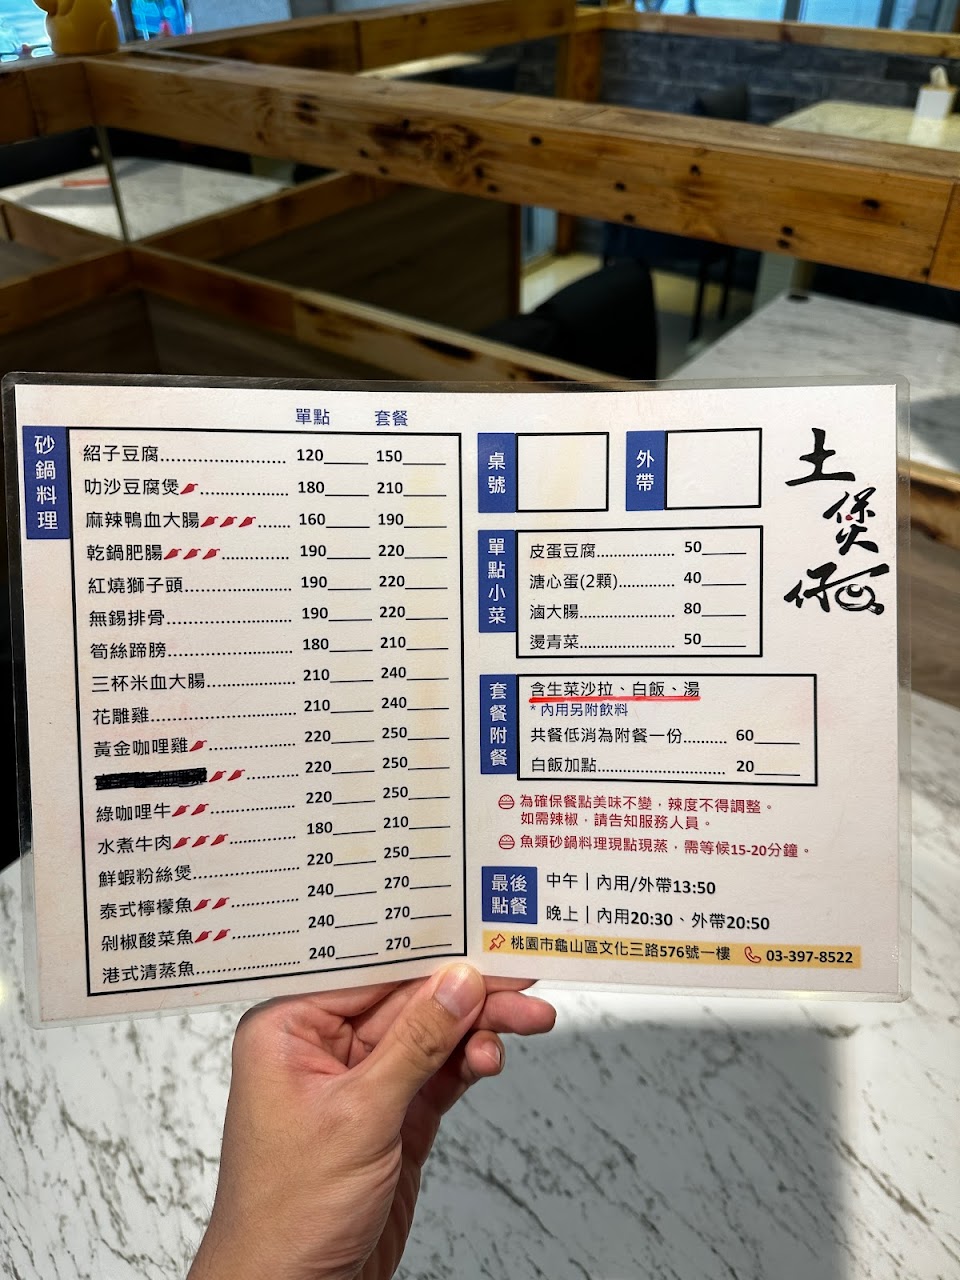 單點 套餐
砂鍋料理
紹子豆腐 120 150
叻沙豆腐煲 180 210
麻辣鴨血大腸 160 190
乾鍋肥腸 190 220
紅燒獅子頭 190 220
無錫排骨 190 220
筍絲蹄膀 180 210
三杯米血大腸 210 240
花雕雞 210 240
黃金咖哩雞 220 250
220 250
綠咖哩牛 220 250
水煮牛肉 180 210
鮮蝦粉絲煲 220 250
泰式檸檬魚 240 270
剁椒酸菜魚 240 270
港式清蒸魚 240 270
桌號
外帶
土煲仔
單點小菜
皮蛋豆腐 50
溏心蛋(2顆) 40
滷大腸 80
燙青菜 50
套餐附餐
含生菜沙拉、白飯、湯
*內用另附飲料
共餐低消為附餐一份 60
白飯加點 20
為確保餐點美味不變，辣度不得調整。
如需辣椒，請告知服務人員。
魚類砂鍋料理現點現蒸，需等候15-20分鐘。
最後點餐
中午｜內用/外帶13:50
晚上｜內用20:30、外帶20:50
桃園市龜山區文化三路576號一樓 03-397-8522